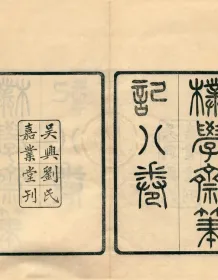 樸學齋筆
記八卷
吳興劉氏
嘉業堂刊